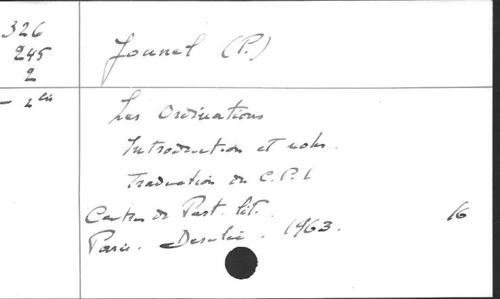 326
245
2
Jounel (P.)
- 2 bis
Les Ordinations
Introduction et notes.
Traduction du C.P.L
Centre de Past. lit.
Paris. Desclée. 1963. 16